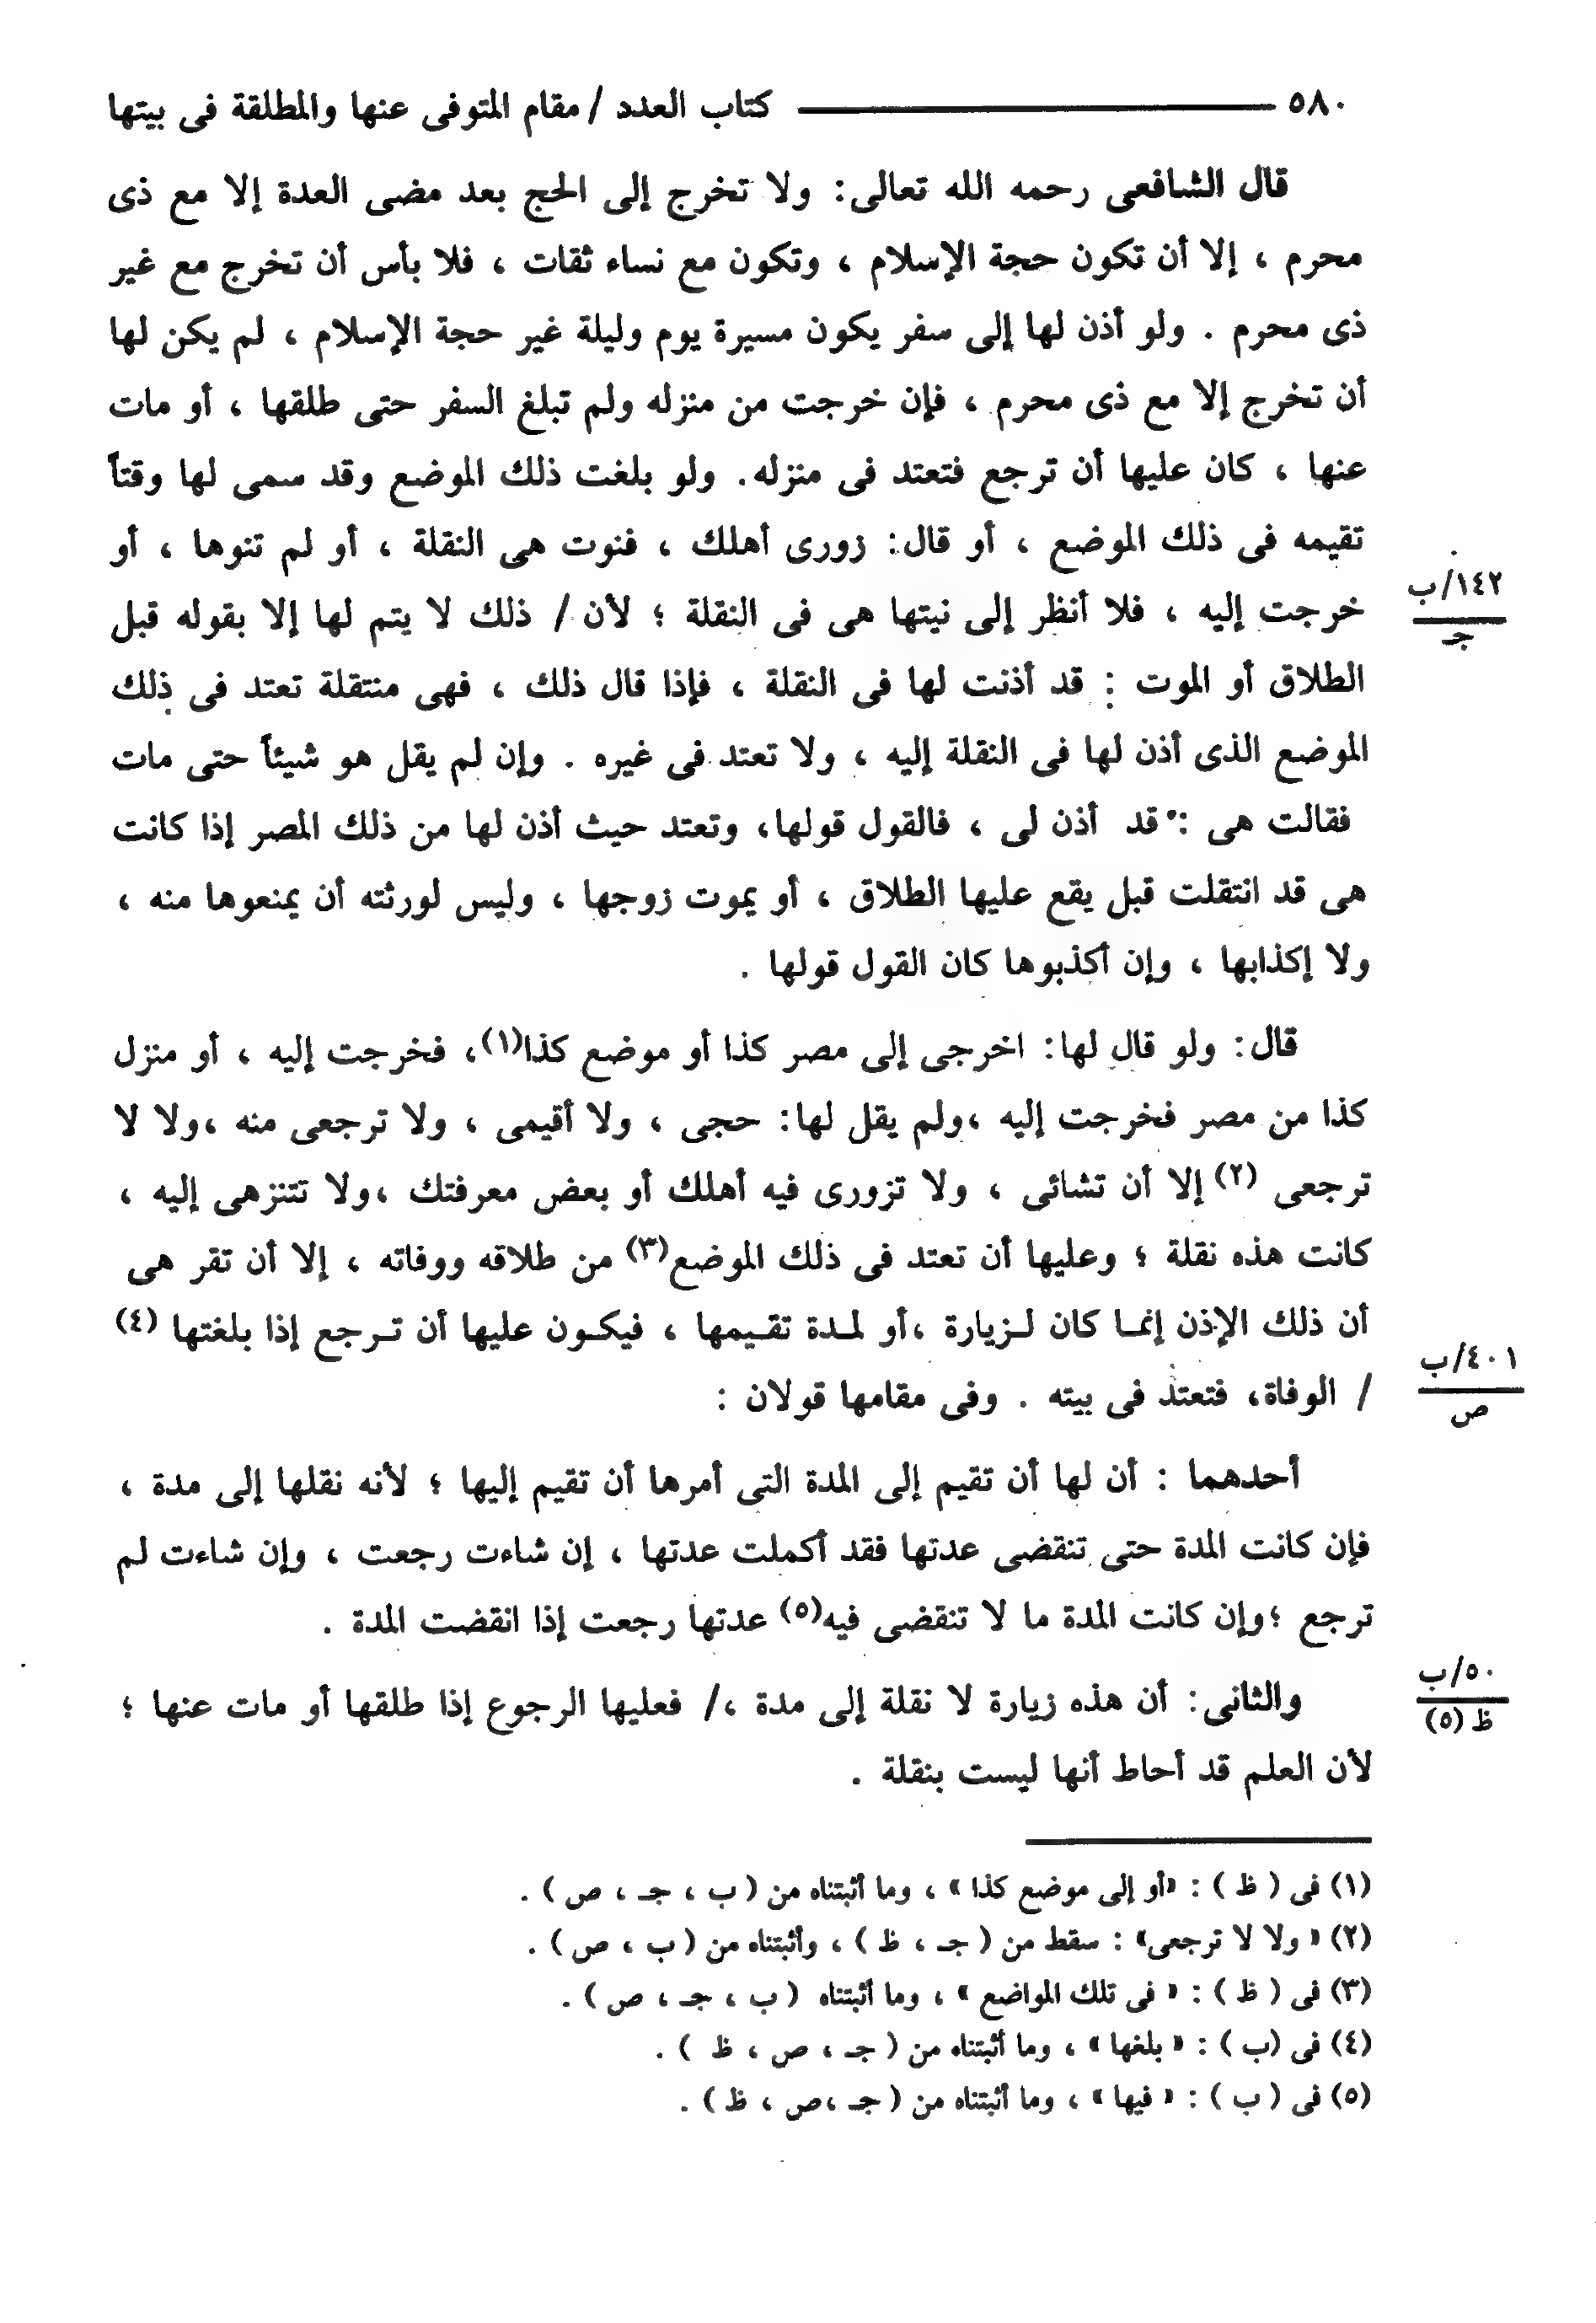 ٥٨٠ كتاب العدد / مقام المتوفى عنها والمطلقة فى بيتها
قال الشافعى رحمه الله تعالى: ولا تخرج إلى الحج بعد مضى العدة إلا مع ذى
محرم ، إلا أن تكون حجة الإسلام ، وتكون مع نساء ثقات ، فلا بأس أن تخرج مع غير
ذى محرم . ولو أذن لها إلى سفر يكون مسيرة يوم وليلة غير حجة الإسلام ، لم يكن لها
أن تخرج إلا مع ذى محرم ، فإن خرجت من منزله ولم تبلغ السفر حتى طلقها ، أو مات
عنها ، كان عليها أن ترجع فتعتد فى منزله. ولو بلغت ذلك الموضع وقد سمى لها وقتاً
تقيمه فى ذلك الموضع ، أو قال: زورى أهلك ، فنوت هى النقلة ، أو لم تنوها ، أو
خرجت إليه ، فلا أنظر إلى نيتها هى فى النقلة ؛ لأن / ذلك لا يتم لها إلا بقوله قبل
١٤٢/ب
جـ
الطلاق أو الموت : قد أذنت لها فى النقلة ، فإذا قال ذلك ، فهى منتقلة تعتد فى ذلك
الموضع الذى أذن لها فى النقلة إليه ، ولا تعتد فى غيره . وإن لم يقل هو شيئاً حتى مات
فقالت هى : قد أذن لى ، فالقول قولها، وتعتد حيث أذن لها من ذلك المصر إذا كانت
هى قد انتقلت قبل يقع عليها الطلاق ، أو يموت زوجها ، وليس لورثته أن يمنعوها منه ،
ولا إكذابها ، وإن أكذبوها كان القول قولها .
قال: ولو قال لها: اخرجى إلى مصر كذا أو موضع كذا(١)، فخرجت إليه ، أو منزل
كذا من مصر فخرجت إليه ،ولم يقل لها: حجى ، ولا أقيمى ، ولا ترجعى منه ،ولا لا
ترجعى (٢) إلا أن تشائى ، ولا تزورى فيه أهلك أو بعض معرفتك ،ولا تتنزهى إليه ،
كانت هذه نقلة ؛ وعليها أن تعتد فى ذلك الموضع(٣) من طلاقه ووفاته ، إلا أن تقر هى
أن ذلك الإذن إنمـا كان لـزيارة ،أو لمـدة تقـيمها ، فيكـون عليها أن تـرجع إذا بلغتها (٤)
/ الوفاة، فتعتد فى بيته . وفى مقامها قولان :
٤٠١/ب
ص
أحدهما : أن لها أن تقيم إلى المدة التى أمرها أن تقيم إليها ؛ لأنه نقلها إلى مدة ،
فإن كانت المدة حتى تنقضى عدتها فقد أكملت عدتها ، إن شاءت رجعت ، وإن شاءت لم
ترجع ؛وإن كانت المدة ما لا تنقضى فيه(٥) عدتها رجعت إذا انقضت المدة .
والثانى: أن هذه زيارة لا نقلة إلى مدة ،/ فعليها الرجوع إذا طلقها أو مات عنها ؛
٥٠/ب
ظ (٥)
لأن العلم قد أحاط أنها ليست بنقلة .
(١) فى ( ظ ) : «أو إلى موضع كذا » ، وما أثبتناه من ( ب ، جـ ، ص ) .
(٢) « ولا لا ترجعى» : سقط من ( جـ ، ظ ) ، وأثبتناه من ( ب ، ص ) .
(٣) فى ( ظ ) : « فى تلك المواضع » ، وما أثبتناه ( ب ، جـ ، ص ) .
(٤) فى (ب ) : « بلغها » ، وما أثبتناه من ( جـ ، ص ، ظ ) .
(٥) فى ( ب ) : « فيها » ، وما أثبتناه من ( جـ ،ص ، ظ ) .